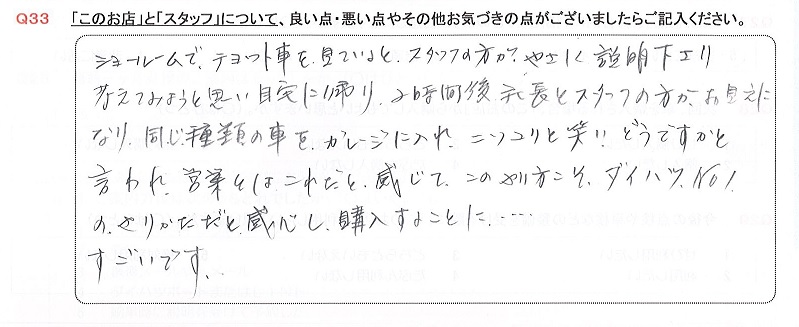 Q33 「このお店」と「スタッフ」について、良い点・悪い点やその他お気づきの点がございましたらご記入ください。
ショールームで、チョット車を、見ていると、スタッフの方が、やさしく説明下さり
考えてみようと思い自宅に帰り、2時間後 店長とスタッフの方が、お見えに
なり、同じ種類の車を、ガレージに入れ、ニッコリと笑い どうですかと
言われ、営業とは、これだと、感じて、このやり方こそ、ダイハツ、No1
の、やりかただと、感心し、購入することに、…
すごいです、